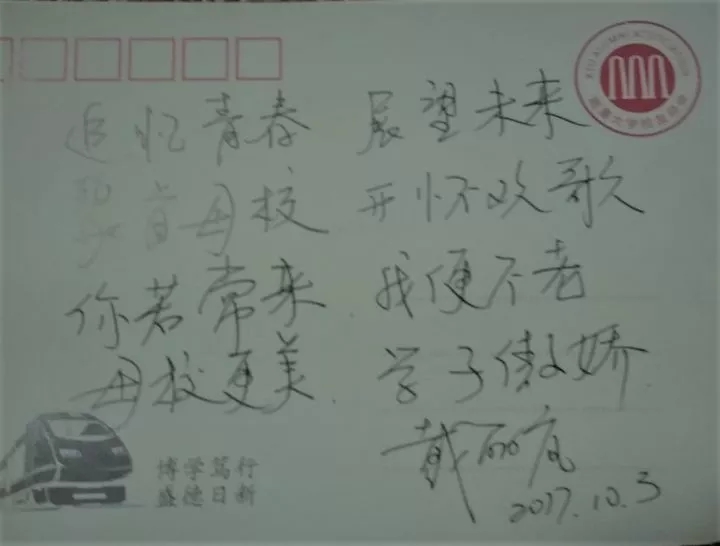 XTU ALUMNI ASSOCIATION
追忆青春 展望未来
聚首母校 开怀欢歌
你若常来 我便不老
母校更美 学子傲娇
戴丽
2017.10.3
博学笃行
盛德日新